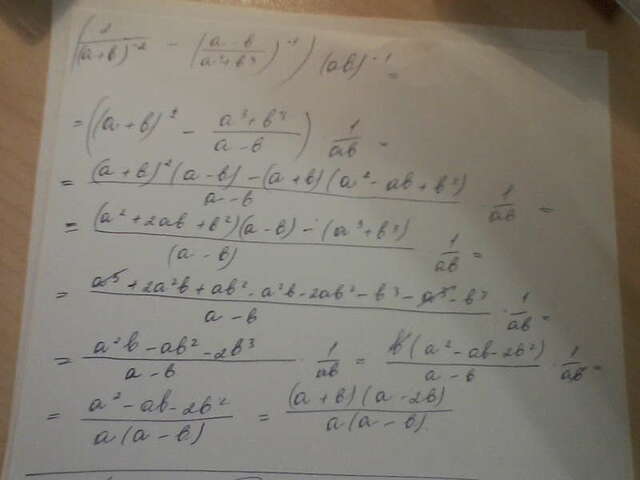 (2/(a+b)^-2 - ((a-b)/(a³+b³))^-1) (ab)^-1 =
= ((a+b)² - (a³+b³)/(a-b)) · 1/ab =
= ((a+b)²(a-b) - (a+b)(a² - ab + b²))/(a-b) · 1/ab =
= ((a² + 2ab + b²)(a-b) - (a³+b³))/(a-b) · 1/ab =
= (a³ + 2a²b + ab² - a²b - 2ab² - b³ - a³ - b³)/(a-b) · 1/ab =
= (a²b - ab² - 2b³)/(a-b) · 1/ab = b(a² - ab - 2b²)/(a-b) · 1/ab =
= (a² - ab - 2b²)/(a(a-b)) = ((a+b)(a-2b))/(a(a-b))